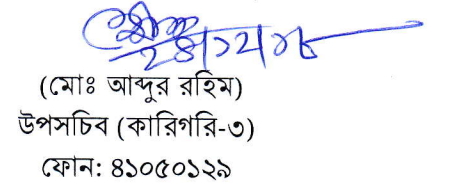 (মোঃ আব্দুর রহিম)
উপসচিব (কারিগরি-৩)
ফোন: ৪১০৫০১২৯